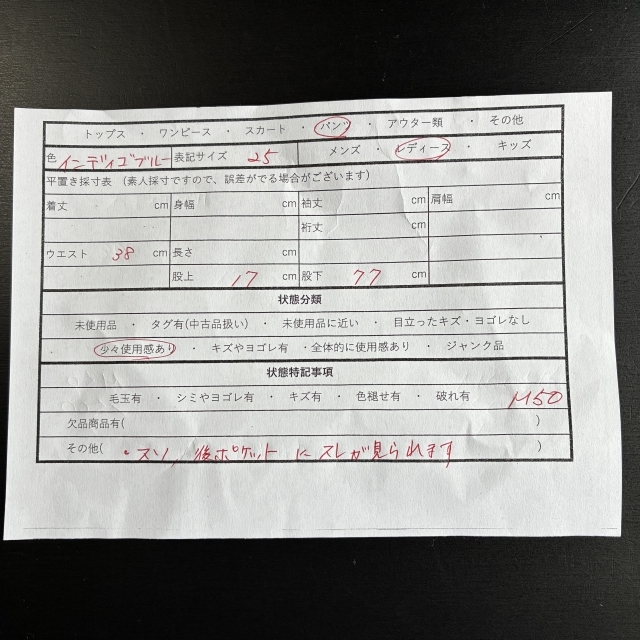 トップス ・ ワンピース ・ スカート ・ パンツ ・ アウター類 ・ その他
色 インディゴブルー 表記サイズ 25 メンズ ・ レディース ・ キッズ
平置き採寸表 (素人採寸ですので、誤差がでる場合がございます)
着丈 cm 身幅 cm 袖丈 cm 肩幅 cm
裄丈 cm
ウエスト 38 cm 長さ cm
股上 17 cm 股下 77 cm
状態分類
未使用品 ・ タグ有(中古品扱い) ・ 未使用品に近い ・ 目立ったキズ・ヨゴレなし
少々使用感あり ・ キズやヨゴレ有 ・全体的に使用感あり ・ ジャンク品
状態特記事項
毛玉有 ・ シミやヨゴレ有 ・ キズ有 ・ 色褪せ有 ・ 破れ有 M50
欠品商品有( )
その他( ・スソ, 後ポケット にスレが見られます )